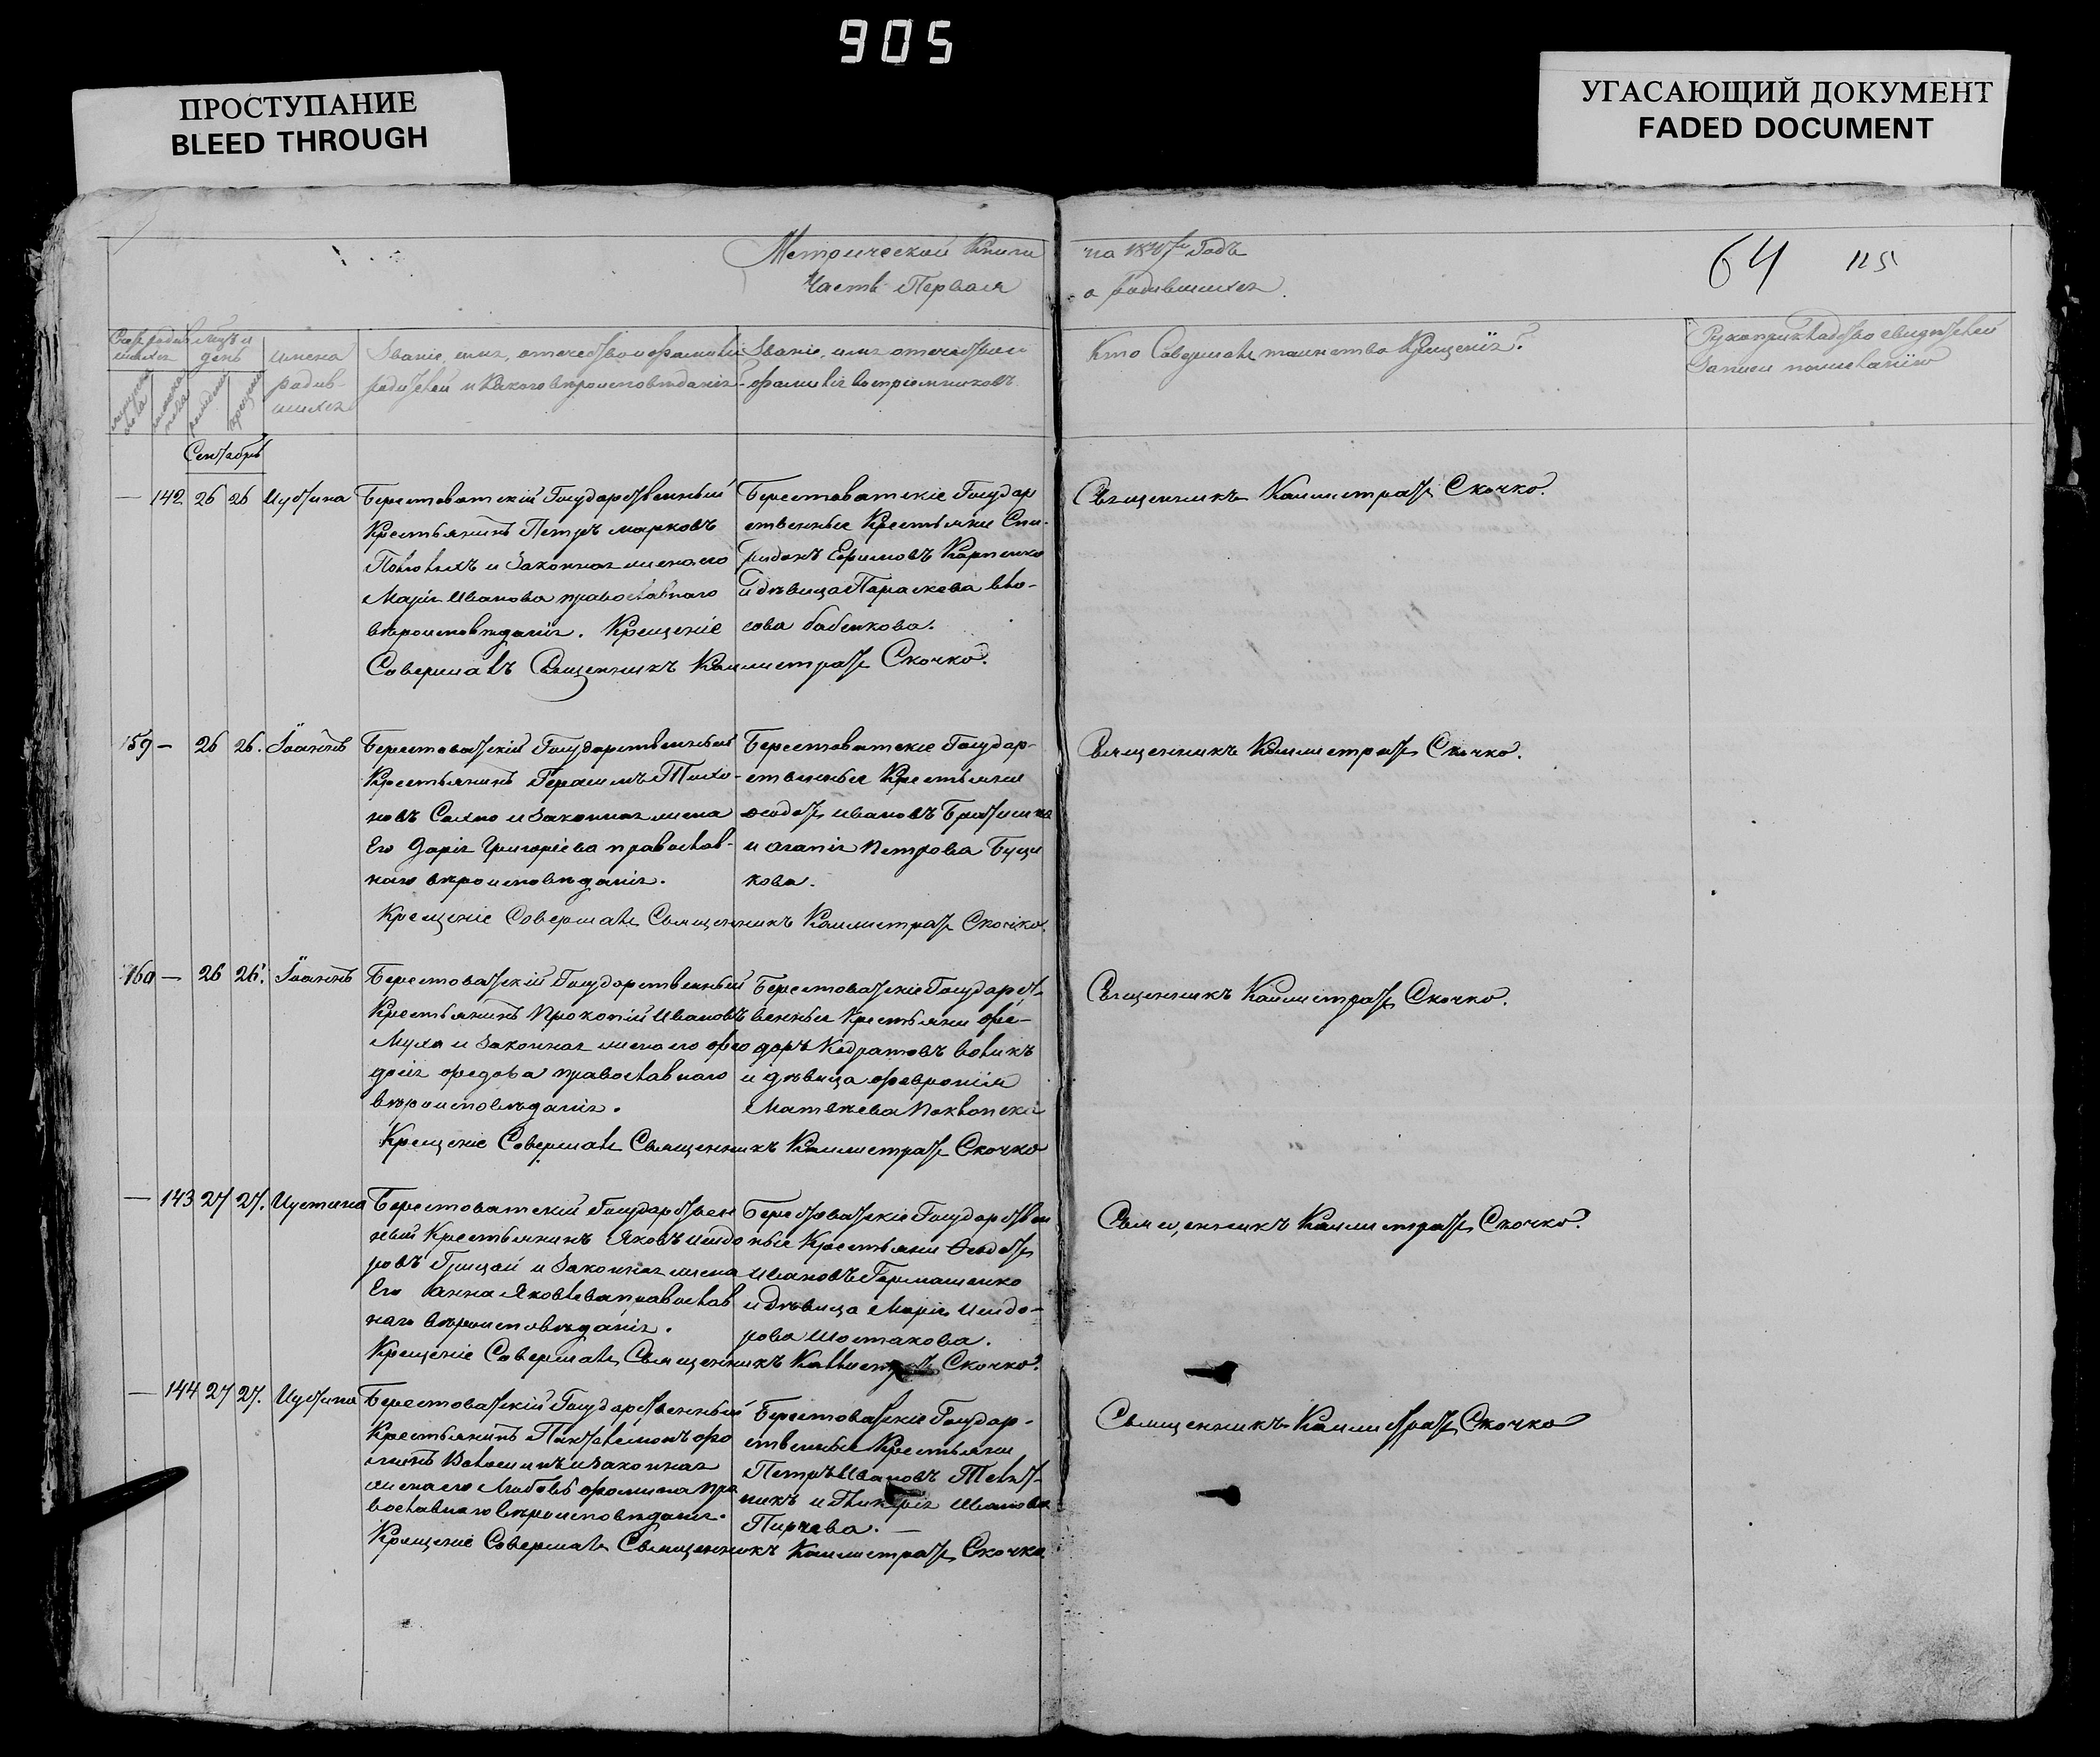 905
ПРОСТУПАНИЕ
BLEED THROUGH
УГАСАЮЩИЙ ДОКУМЕНТ
FADED DOCUMENT
Метрической Книги на 1847й Годъ
64 115
Часть Первая о родившихся
Мѣсяцъ и день
имена родившихся
Званіе, имя, отечество и фамилія родителей и какого вѣроисповѣданія
Званіе, имя отечество и фамилія воспріемниковъ
Кто Совершалъ таинство Крещенія?
Рукоприкладство свидѣтелей Записи по желанію
Сентябрь
— 142 26 26 Иустина
Берестоватскій Государственный
Крестьянинъ Петръ марковъ
и Законная жена его
Марія Иванова православнаго
вѣроисповѣданія. Крещеніе
Совершалъ Священникъ Каллистратъ Скочко.
Берестоватскіе Государ
ственные Крестьяни Спи-
ридонъ Ефимовъ Карпенко
и дѣвица Параскева вла-
сова бабенкова.
Священникъ Каллистратъ Скочко.
159 — 26 26. Іоаннъ
Берестоватскій Государственный
Крестьянинъ Герасимъ Тихо-
новъ Сахно и Законная жена
Его Дарія Григоріева православ-
наго вѣроисповѣданія.
Крещеніе Совершалъ Священникъ Каллистратъ Скочко.
Берестоватскіе Государ-
ственные Крестьяни
Федотъ ивановъ
и агапія Петрова Буци
кова.
Священникъ Каллистратъ Скочко.
160 — 26 26. Іоаннъ
Берестоватскій Государственный
Крестьянинъ Прокопій Ивановъ
Муха и Законная жена его Фео
досія Федова православнаго
вѣроисповѣданія.
Крещеніе Совершалъ Священникъ Каллистратъ Скочко
Берестоватскіе Государст-
венные Крестьяни Фе-
доръ Кодратовъ вовкъ
и дѣвица Февронія
Матвѣева
Священникъ Каллистратъ Скочко.
— 143 27 27. Иустина
Берестоватскій Государствен
ный Крестьянинъ Яковъ исидо
ровъ Грицай и Законная жена
Его Анна Яковлева православ
наго вѣроисповѣданія.
Крещеніе Совершалъ Священникъ Каллистратъ Скочко.
Берестоватскіе Государствен
ные Крестьяни Феодотъ
Ивановъ Гармашенко
и дѣвица Марія Исидо-
рова Шостакова.
Священникъ Каллистратъ Скочко.
— 144 27 27. Иустина
Берестоватскій Государственный
Крестьянинъ Пантелеимонъ Фо
минъ и Законная
жена его Любовь Фомина пра
вославнаго вѣроисповѣданія.
Крещеніе Совершалъ Священникъ Каллистратъ Скочко
Берестоватскіе Государ-
ственные Крестьяни
Петръ Ивановъ
и Гликерія Иванова
Пирчева. —
Священникъ Каллистратъ Скочко